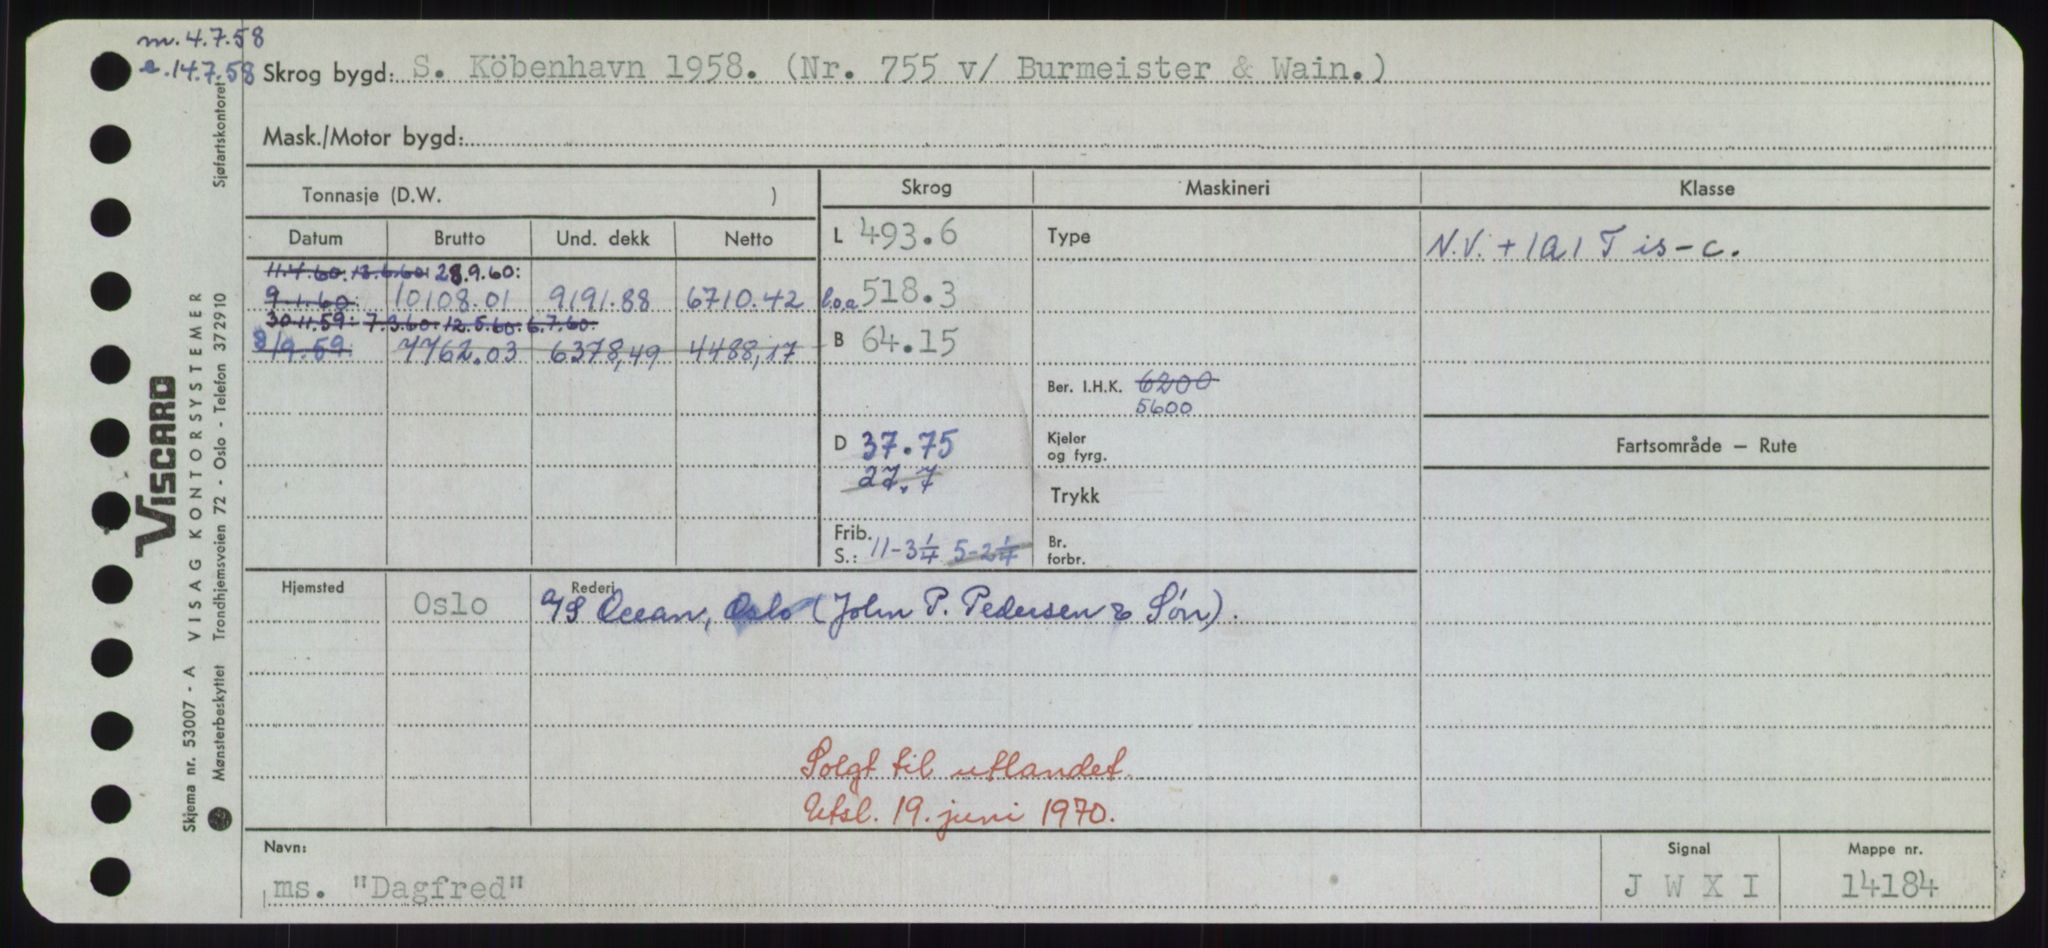 m. 4.7.58
e. 14.7.58 Skrog bygd: S. Köbenhavn 1958. (Nr. 755 v/ Burmeister & Wain.)
Mask./Motor bygd:
Tonnasje (D.W. )
Skrog Maskineri Klasse
Datum Brutto Und. dekk Netto
L 493.6 Type N.V. + 1A1 T is-c.
11.4.60: 13.6.60: 28.9.60:
9.1.60: 10108.01 9191.88 6710.42 l.o.a 518.3
30.11.59: 7.3.60: 12.5.60: 6.7.60:
8/9.59 7762.03 6378,49 4488,17 B 64.15
Ber. I.H.K. 6200
5600
D 37.75 Kjeler og fyrg. Fartsområde — Rute
27.7
Trykk
Frib. S.: 11-3¼ 5-2¼ Br. forbr.
Hjemsted Oslo Rederi
A/S Ocean, Oslo (John P. Pedersen & Søn).
Solgt til utlandet.
Utsl. 19. juni 1970.
Navn: Signal Mappe nr.
ms. "Dagfred" J W X I 14184
VISCARD
Skjema nr. 53007 - A VISAG KONTORSYSTEMER
Mønsterbeskyttet Trondhjemsveien 72 - Oslo - Telefon 372910 Sjøfartskontoret